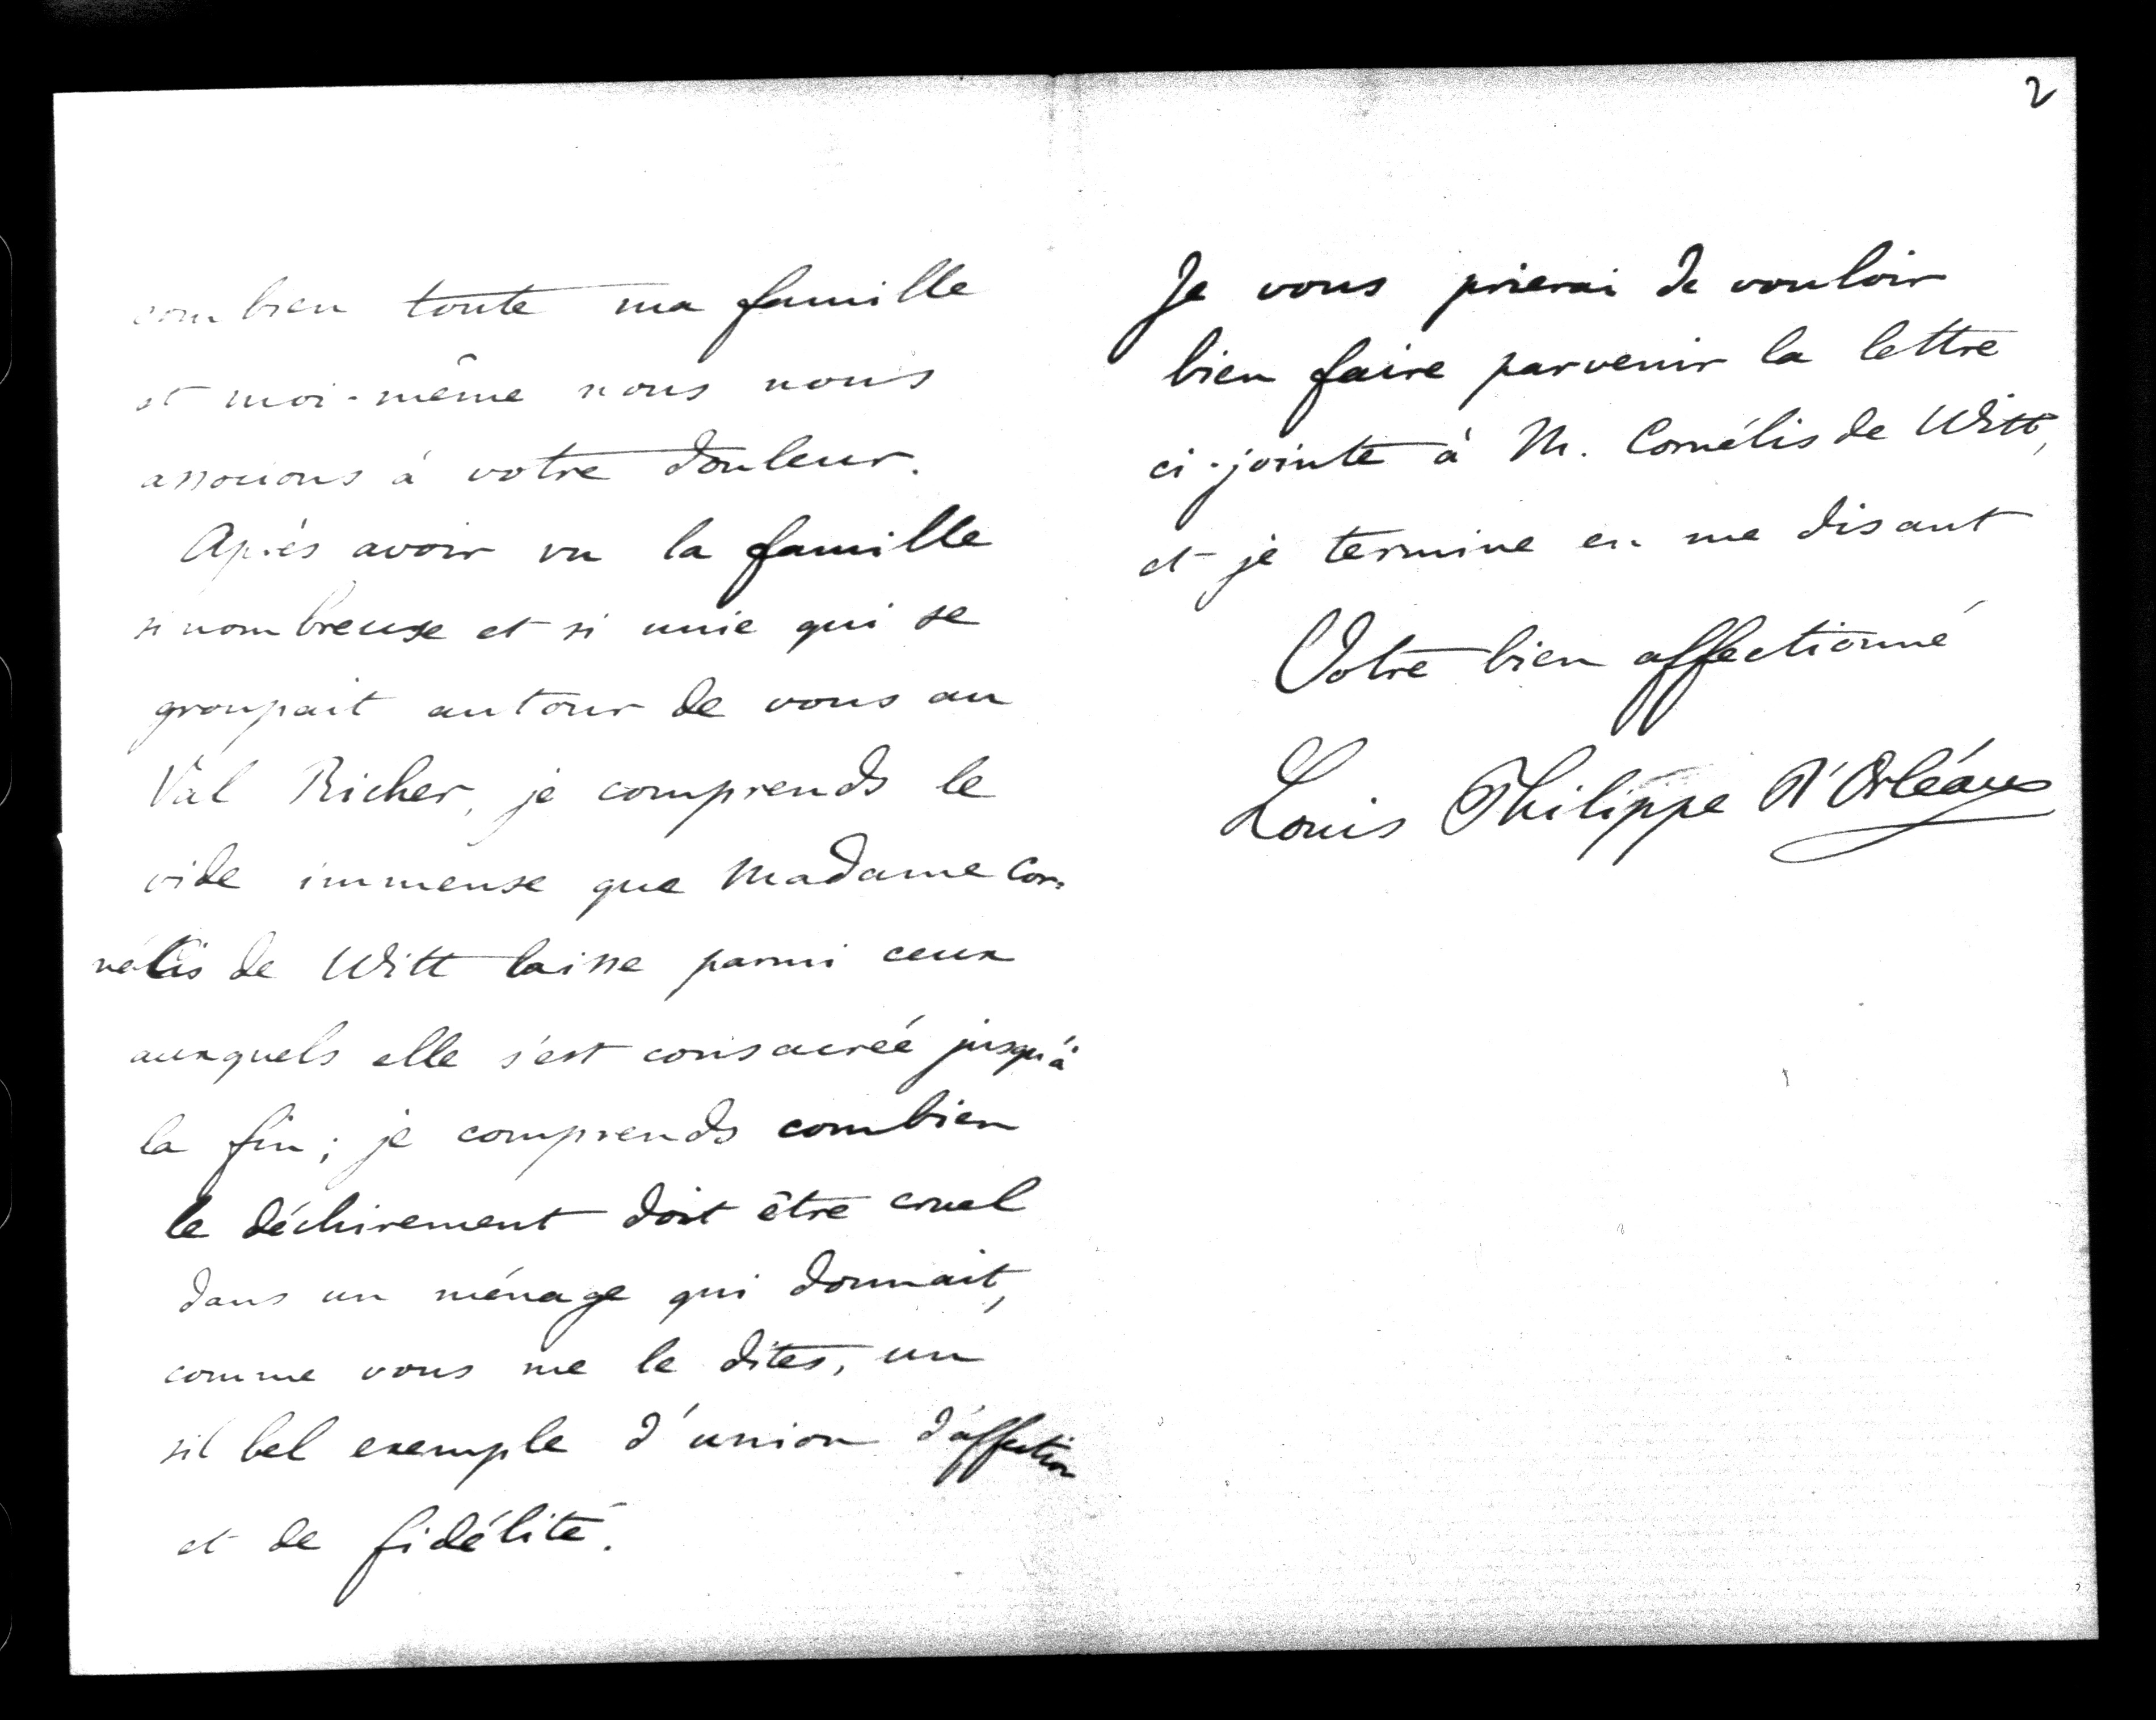 combien toute ma famille
et moi-même nous nous
associons à votre douleur.
Après avoir vu la famille
si nombreuse et si unie qui se
groupait autour de vous au
Val Richer, je comprends le
vide immense que Madame Cor=
nélis de Witt laisse parmi ceux
auxquels elle s'est consacrée jusqu'à
la fin ; je comprends combien
le déchirement doit être cruel
dans un ménage qui donnait,
comme vous me le dites, un
sil bel exemple d'union d'affection
et de fidélité.
2
Je vous prierai de vouloir
bien faire parvenir la lettre
ci-jointe à M. Cornélis de Witt,
et je termine en me disant
Votre bien affectionné
Louis Philippe d'Orléans